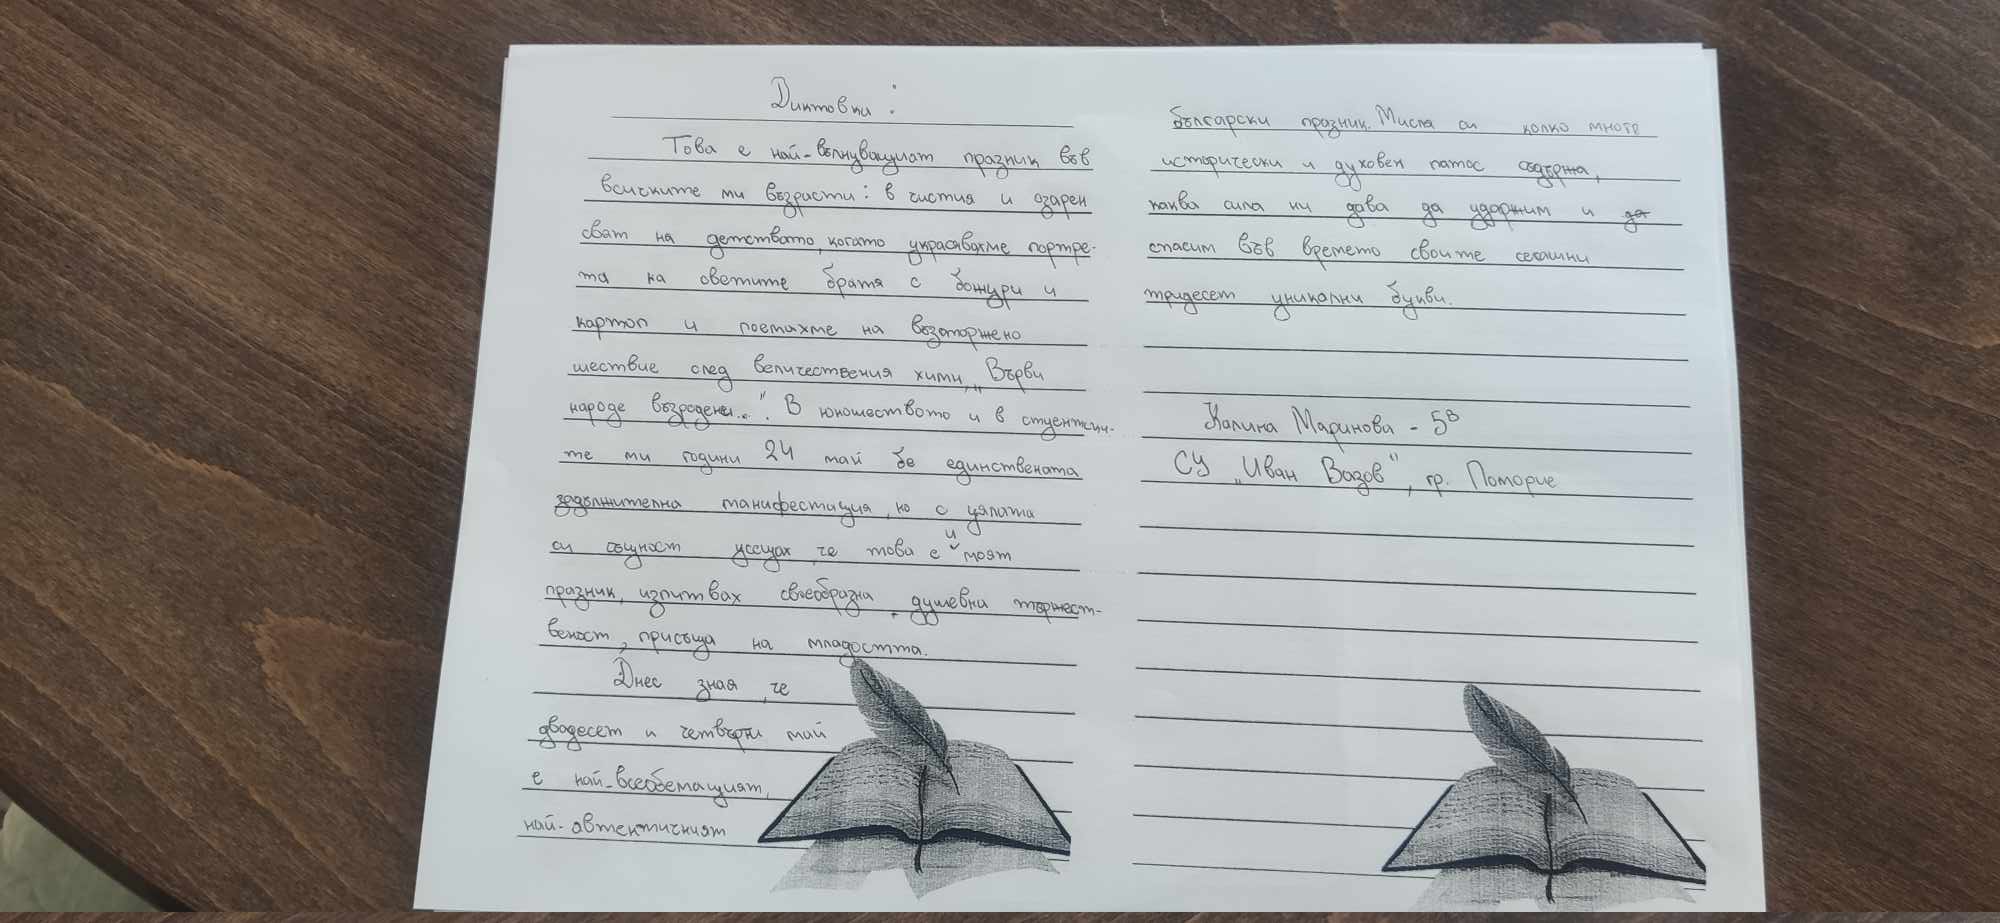 Диктовка :
Това е най-вълнуващият празник във
всичките ми възрасти: в чистия и озарен
свят на детството, когато украсявахме портре-
та на светите братя с божури и
картоп и поетихме на възторжено
шествие след величествения химн „Върви
народе възродени...". В юношеството и в студентски-
те ми години 24 май бе единствената
задължителна манифестиция, но с цялата
си същност усещах, че това е и моят
празник, изпитвах своеобразна, душевна тържест-
веност, присъща на младостта.
Днес зная, че
двадесет и четвърти май
е най-всеобемащият,
най-автентичният
български празник. Мисля си колко много
исторически и духовен патос съдържа,
каква сила ни дава да удържим и да
спасим във времето своите сегашни
тридесет уникални букви.
Калина Маринова - 5в
СУ „Иван Вазов", гр. Поморие